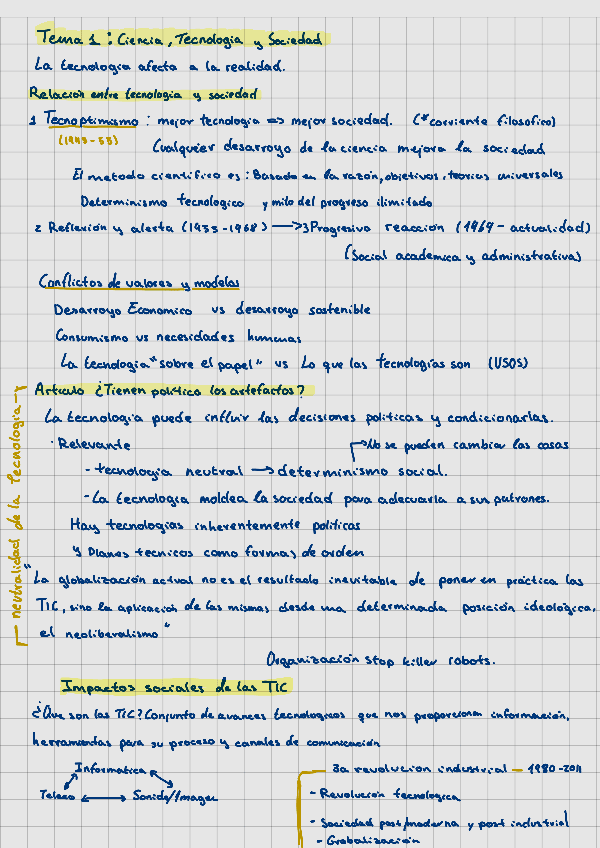 Tema 1 : Ciencia, Tecnologia y Sociedad
La tecnologia afecta a la realidad.
Relacion entre tecnologia y sociedad
1 Tecnoptimismo : mejor tecnologia => mejor sociedad. (*corriente filosofico)
(1945-55) Cualquier desarroyo de la ciencia mejora la sociedad
El metodo cientifico es: Basado en la razon, objetivos, teorias universales
Determinismo tecnologico y mito del progreso ilimitado
2 Reflexión y alerta (1955-1968) → 3 Progresivo reacción (1969 - actualidad)
(Social academica y administrativa)
Conflictos de valores y modelos
Desarroyo Economico vs desarroyo sostenible
Consumismo vs necesidades humanas
La tecnologia "sobre el papel" vs Lo que las tecnologías son (USOS)
Articulo ¿Tienen politica los artefactos?
La tecnologia puede influir las decisiones politicas y condicionarlas.
· Relevante → No se pueden cambiar las cosas
- tecnologia neutral → determinismo social.
- La tecnologia moldea la sociedad para adecuarla a sus patrones.
Hay tecnologias inherentemente politicas
y Planos tecnicos como formas de orden
neutralidad de la tecnologia
"La globalización actual no es el resultado inevitable de poner en práctica las
TIC, sino la aplicación de las mismas desde una determinada posición ideológica,
el neoliberalismo"
Organización stop killer robots.
Impactos sociales de las TIC
¿Que son las TIC? Conjunto de avances tecnologicos que nos proporcionan información,
herramientas para su proceso y canales de comunicación
Informatica
Teleco ↔ Sonido/Imagen
3a revolución industrial - 1980-2011
- Revolución tecnologica
- Sociedad post/moderna y post industrial
- Grobalización